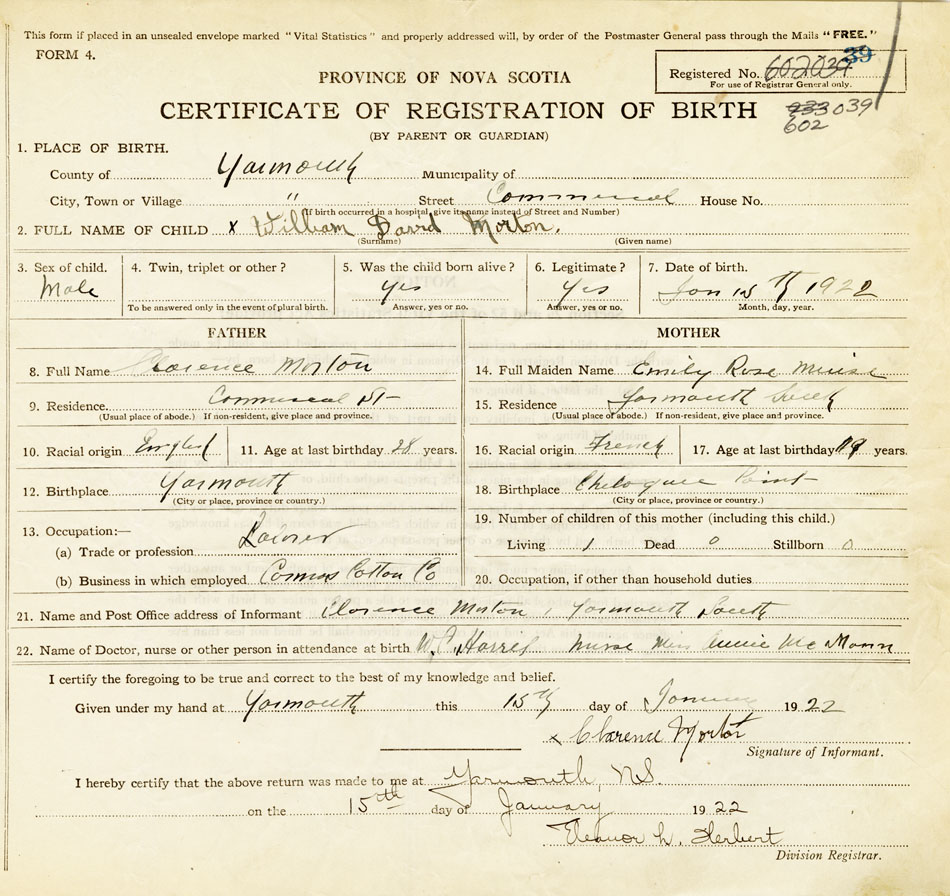 This form if placed in an unsealed envelope marked "Vital Statistics" and properly addressed will, by order of the Postmaster General pass through the Mails "FREE."
FORM 4.
39
Registered No. 602039
For use of Registrar General only.
PROVINCE OF NOVA SCOTIA
CERTIFICATE OF REGISTRATION OF BIRTH
933 039
602
(BY PARENT OR GUARDIAN)
1. PLACE OF BIRTH.
County of Yarmouth Municipality of
City, Town or Village " Street Commercial House No.
(If birth occurred in a hospital, give its name instead of Street and Number)
2. FULL NAME OF CHILD x William David Morton.
(Surname) (Given name)
3. Sex of child. 4. Twin, triplet or other? 5. Was the child born alive? 6. Legitimate? 7. Date of birth.
Male yes Yes Jan 15th 1922
To be answered only in the event of plural birth. Answer, yes or no. Answer, yes or no. Month, day, year.
FATHER MOTHER
8. Full Name Clarence Morton 14. Full Maiden Name Emily Rose
9. Residence Commercial St 15. Residence Yarmouth South
(Usual place of abode.) If non-resident, give place and province. (Usual place of abode.) If non-resident, give place and province.
10. Racial origin English 11. Age at last birthday 28 years. 16. Racial origin French 17. Age at last birthday 19 years.
12. Birthplace Yarmouth 18. Birthplace Point
(City or place, province or country.) (City or place, province or country.)
13. Occupation:— 19. Number of children of this mother (including this child.)
(a) Trade or profession Living 1 Dead 0 Stillborn 0
(b) Business in which employed Cosmos Cotton Co 20. Occupation, if other than household duties
21. Name and Post Office address of Informant Clarence Morton, Yarmouth South
22. Name of Doctor, nurse or other person in attendance at birth Nurse Annie
I certify the foregoing to be true and correct to the best of my knowledge and belief.
Given under my hand at Yarmouth this 15th day of January 1922
x Clarence Morton
Signature of Informant.
I hereby certify that the above return was made to me at Yarmouth, N.S.
on the 15th day of January 1922
Eleanor L. Herbert
Division Registrar.